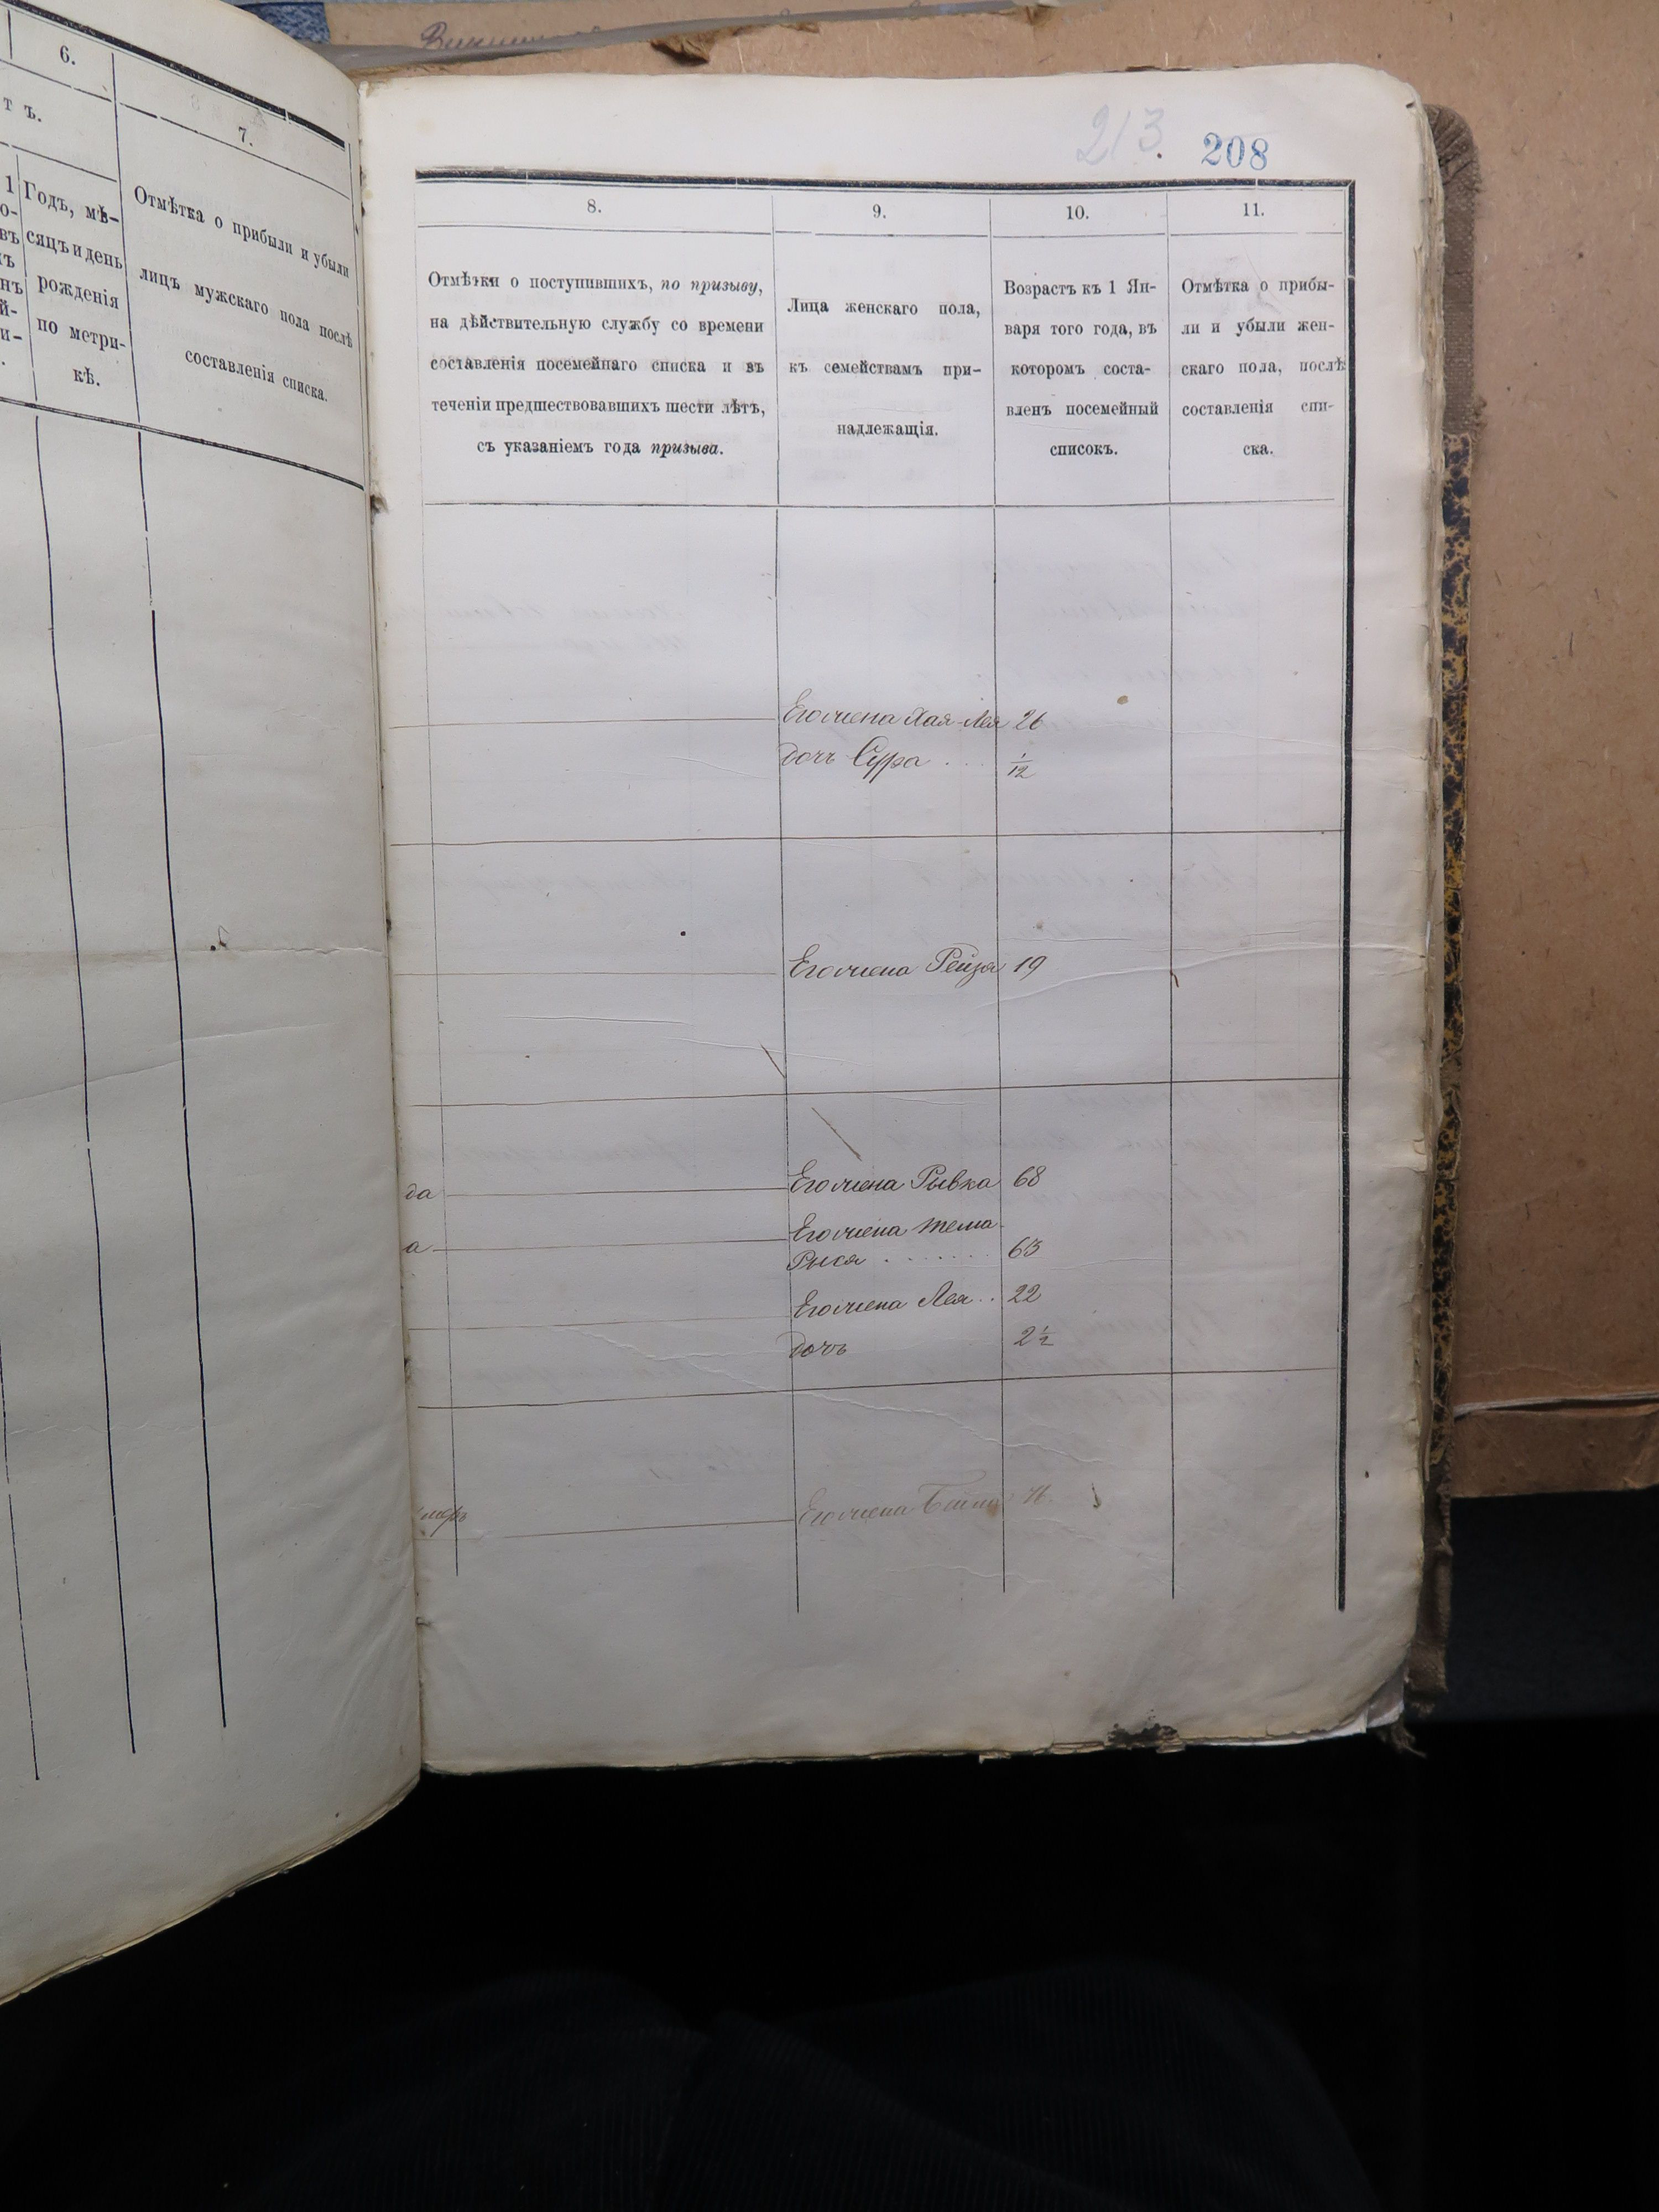 6.
т ъ.
7.
1
о-
въ
нъ
й-
и-
Годъ, мѣ-
сяцъ и день
рожденія
по метри-
кѣ.
Отмѣтка о прибыли и убыли
лицъ мужскаго пола послѣ
составленія списка.
213.
208
8.
9.
10.
11.
Отмѣтки о поступившихъ, по призыву,
на дѣйствительную службу со времени
составленія посемейнаго списка и въ
теченіи предшествовавшихъ шести лѣтъ,
съ указаніемъ года призыва.
Лица женскаго пола,
къ семействамъ при-
надлежащія.
Возрастъ къ 1 Ян-
варя того года, въ
которомъ соста-
вленъ посемейный
списокъ.
Отмѣтка о прибы-
ли и убыли жен-
скаго пола, послѣ
составленія спи-
ска.
Его жена Хая-Лея 26
дочь Сура . . . 1/12
Его жена Рейза 19
да Его жена Рывка 68
а Его жена Тема-
Рыся . . . . . . . 63
Его жена Лея . . 22
дочь 2 1/2
Его жена